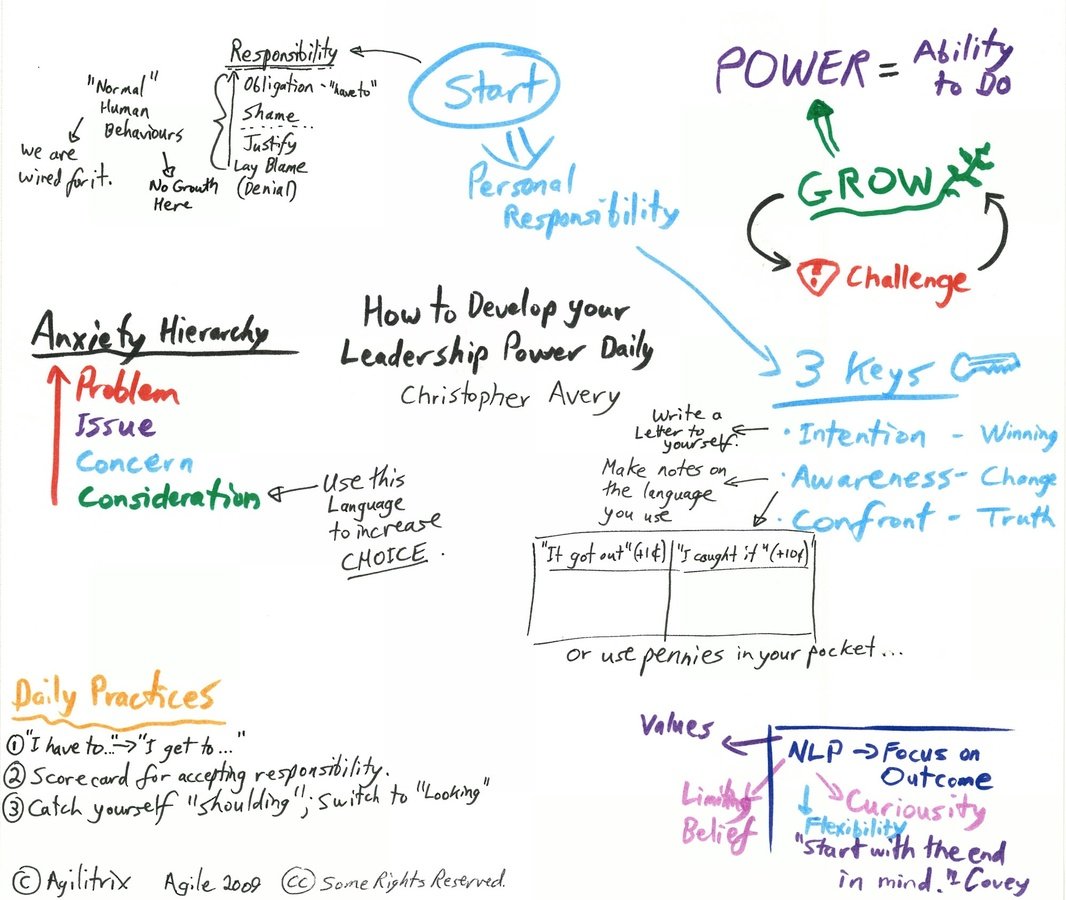 Responsibility
Obligation - "have to"
Shame
Justify
Lay Blame
(Denial)
"Normal"
Human
Behaviours
we are
wired for it.
No Growth
Here
Start
Personal
Responsibility
POWER = Ability
to Do
GROW
! Challenge
How to Develop your
Leadership Power Daily
Christopher Avery
Anxiety Hierarchy
Problem
Issue
Concern
Consideration
Use this
Language
to increase
CHOICE.
3 Keys
• Intention - Winning
• Awareness - Change
• Confront - Truth
Write a
Letter to
yourself.
Make notes on
the language
you use
"It got out" (+1¢)
"I caught it" (+10¢)"
or use pennies in your pocket...
Daily Practices
① "I have to.." → "I get to..."
② Scorecard for accepting responsibility.
③ Catch yourself "shoulding"; Switch to "Looking"
Values
NLP → Focus on
Outcome
Limiting
Belief
Curiousity
Flexibility
"Start with the end
in mind." Covey
© Agilitrix Agile 2009 (cc) Some Rights Reserved.